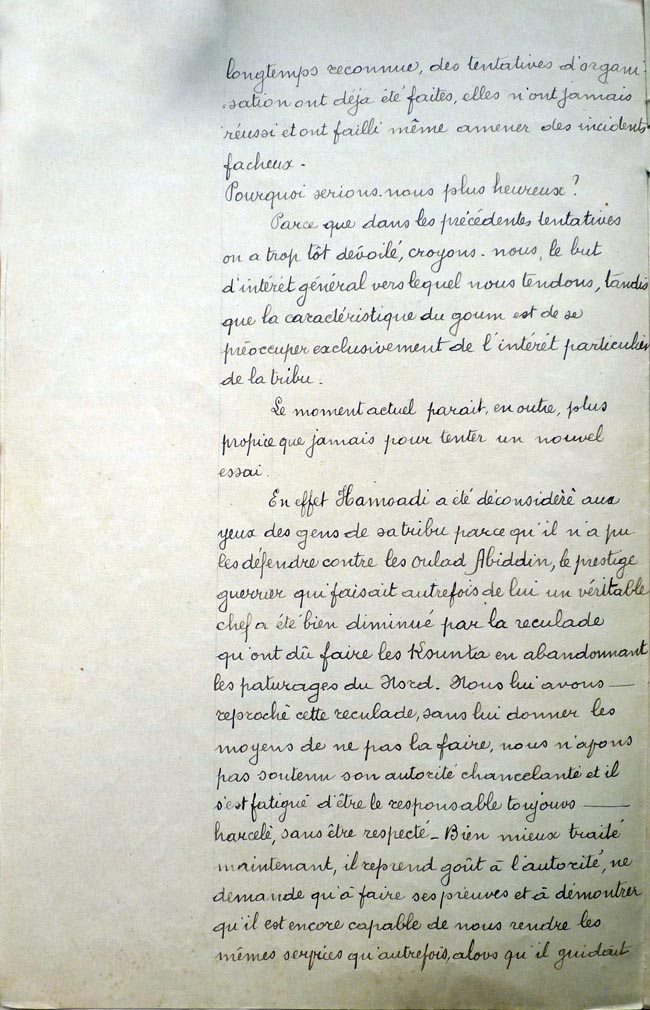 longtemps reconnue, des tentatives d'organi-
sation ont déja été faites, elles n'ont jamais
réussi et ont failli même amener des incidents
facheux.
Pourquoi serions-nous plus heureux?
Parce que dans les précédentes tentatives
on a trop tôt dévoilé, croyons-nous, le but
d'intérêt général vers lequel nous tendons, tandis
que la caractéristique du goum est de se
préoccuper exclusivement de l'intérêt particulier
de la tribu.
Le moment actuel parait, en outre, plus
propice que jamais pour tenter un nouvel
essai.
En effet Hamoadi a été déconsidèrê aux
yeux des gens de sa tribu parce qu'il n'a pu
les défendre contre les Oulad Abiddin, le prestige
guerrier qui faisait autrefois de lui un véritable
chef a été bien diminué par la reculade
qu'ont dû faire les Kounta en abandonnant
les paturages du Nord. Nous lui avons —
reproché cette reculade, sans lui donner les
moyens de ne pas la faire, nous n'avons
pas soutenu son autorité chancelante et il
s'est fatigué d'être le responsable toujours —
harcelé, sans être respecté - Bien mieux traité
maintenant, il reprend goût à l'autorité, ne
demande qu'à faire ses preuves et à démontrer
qu'il est encore capable de nous rendre les
mêmes services qu'autrefois, alors qu'il guidait